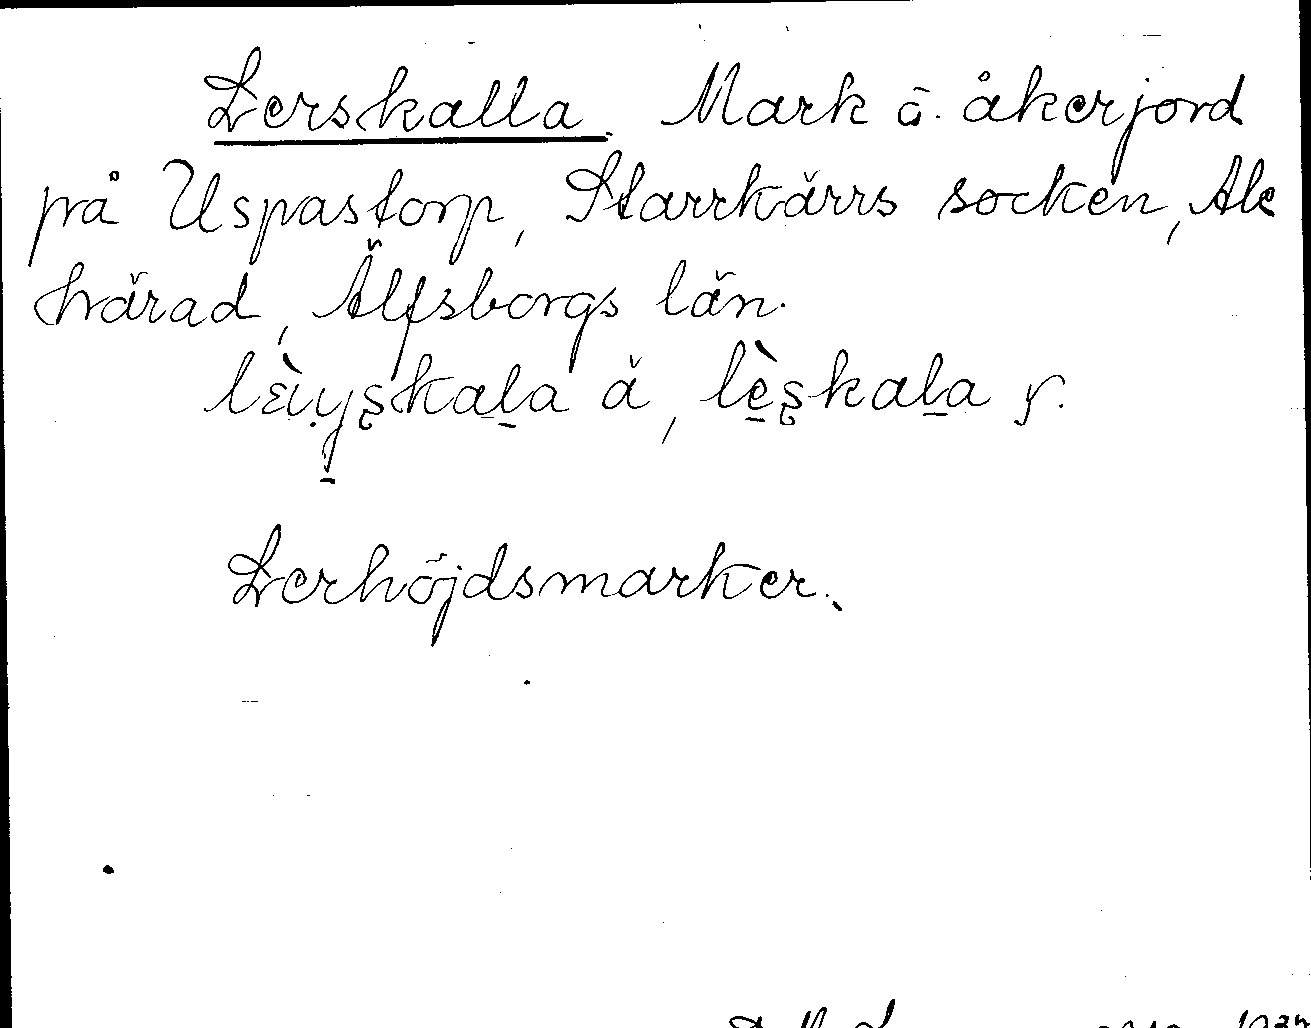 Lerskalla. Mark o. åkerjord
på Uspastorp, Starrkärrs socken, Ale
härad, Älfsborgs län.
lèıyskala ä, lèskala y.
Lerhöjdsmarker.